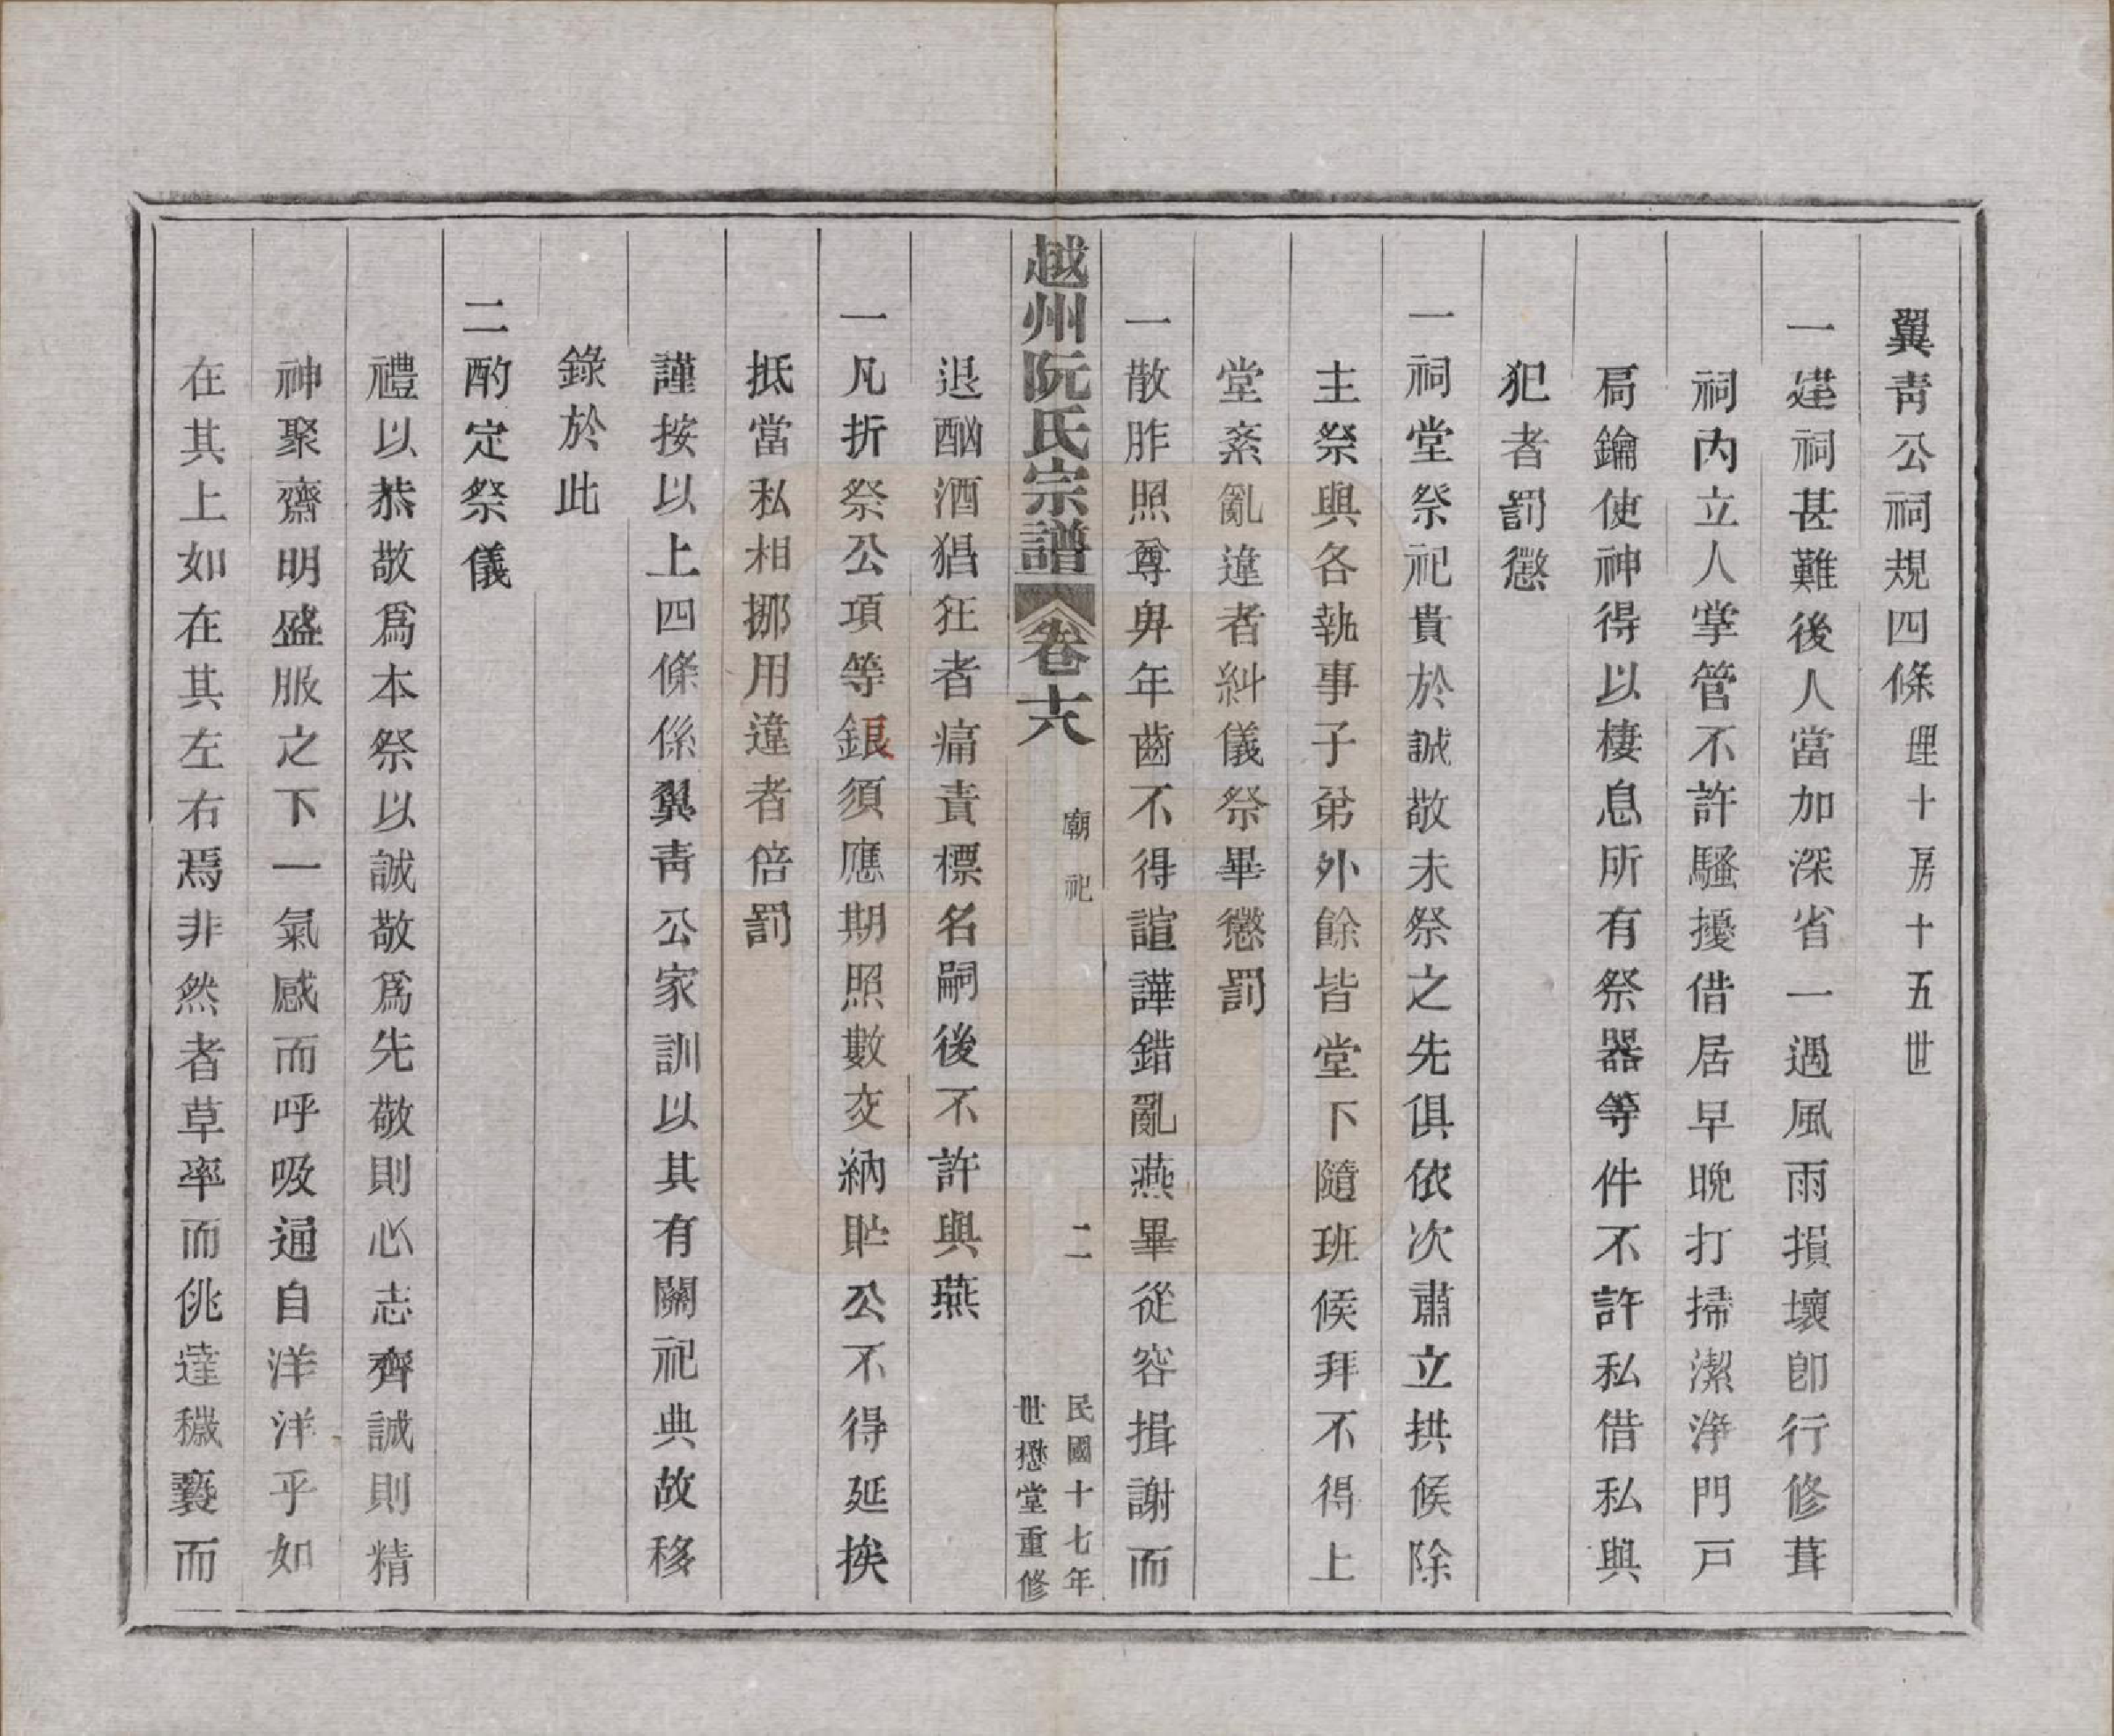 翼靑公祠規四條理十房十五世
一建祠甚難後人當加深省一遇風雨損壞卽行修葺
祠內立人掌管不許騷擾借居早晚打掃潔淨門戸
扃鑰使神得以棲息所有祭器等件不許私借私與
犯者罰懲
一祠堂祭祀貴於誠敬未祭之先俱依次肅立拱候除
主祭與各執事子弟外餘皆堂下隨班候拜不得上
堂紊亂違者糾儀祭畢懲罰
一散胙照尊畀年齒不得諠譁錯亂燕畢從容揖謝而
越州阮氏宗譜 卷十六 廟祀 二 民國十七年 世懋堂重修
退酗酒猖狂者痛責標名嗣後不許與燕
一凡折祭公項等銀須應期照數交納貯公不得延挨
抵當私相挪用違者倍罰
謹按以上四條係翼靑公家訓以其有關祀典故移
錄於此
二酌定祭儀
禮以恭敬爲本祭以誠敬爲先敬則心志齊誠則精
神聚齋明盛服之下一氣感而呼吸通自洋洋乎如
在其上如在其左右焉非然者草率而佻達穢褻而